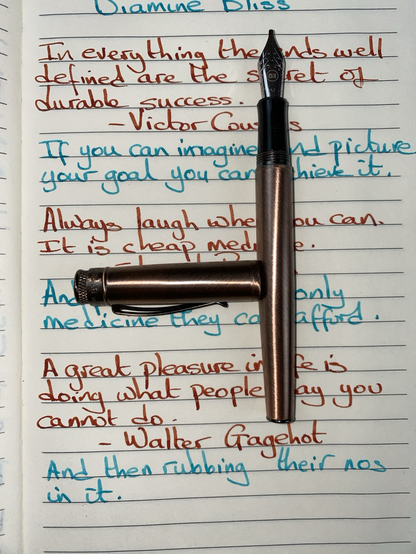 Diamine Bliss
In everything the ends well
defined are the secret of
durable success.
- Victor
If you can imagine and picture
your goal you can achieve it.
Always laugh when you can.
It is cheap medicine.
And only
medicine they can afford.
A great pleasure in life is
doing what people say you
cannot do.
- Walter Gagehot
And then rubbing their nos
in it.